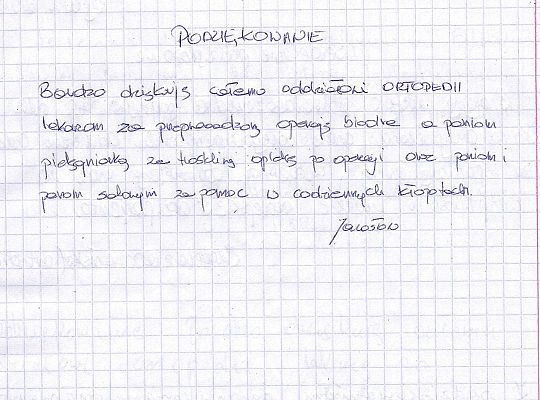 PODZIĘKOWANIE
Bardzo dziękuję całemu oddziałowi ORTOPEDII
lekarzom za przeprowadzoną operację biodra a paniom
pielęgniarką za troskliwą opiekę po operacji oraz paniom i
panom salowym za pomoc w codziennych kłopotach.